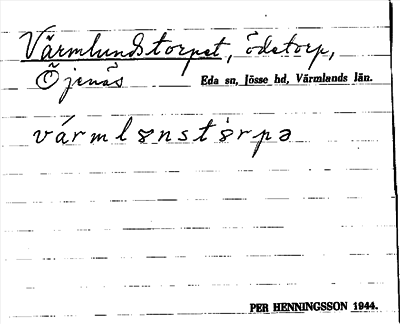 Värmlundstorpet, ödetorp,
Öjenäs Eda sn, Jösse hd, Värmlands län.
vármlənstòrpə
PER HENNINGSSON 1944.